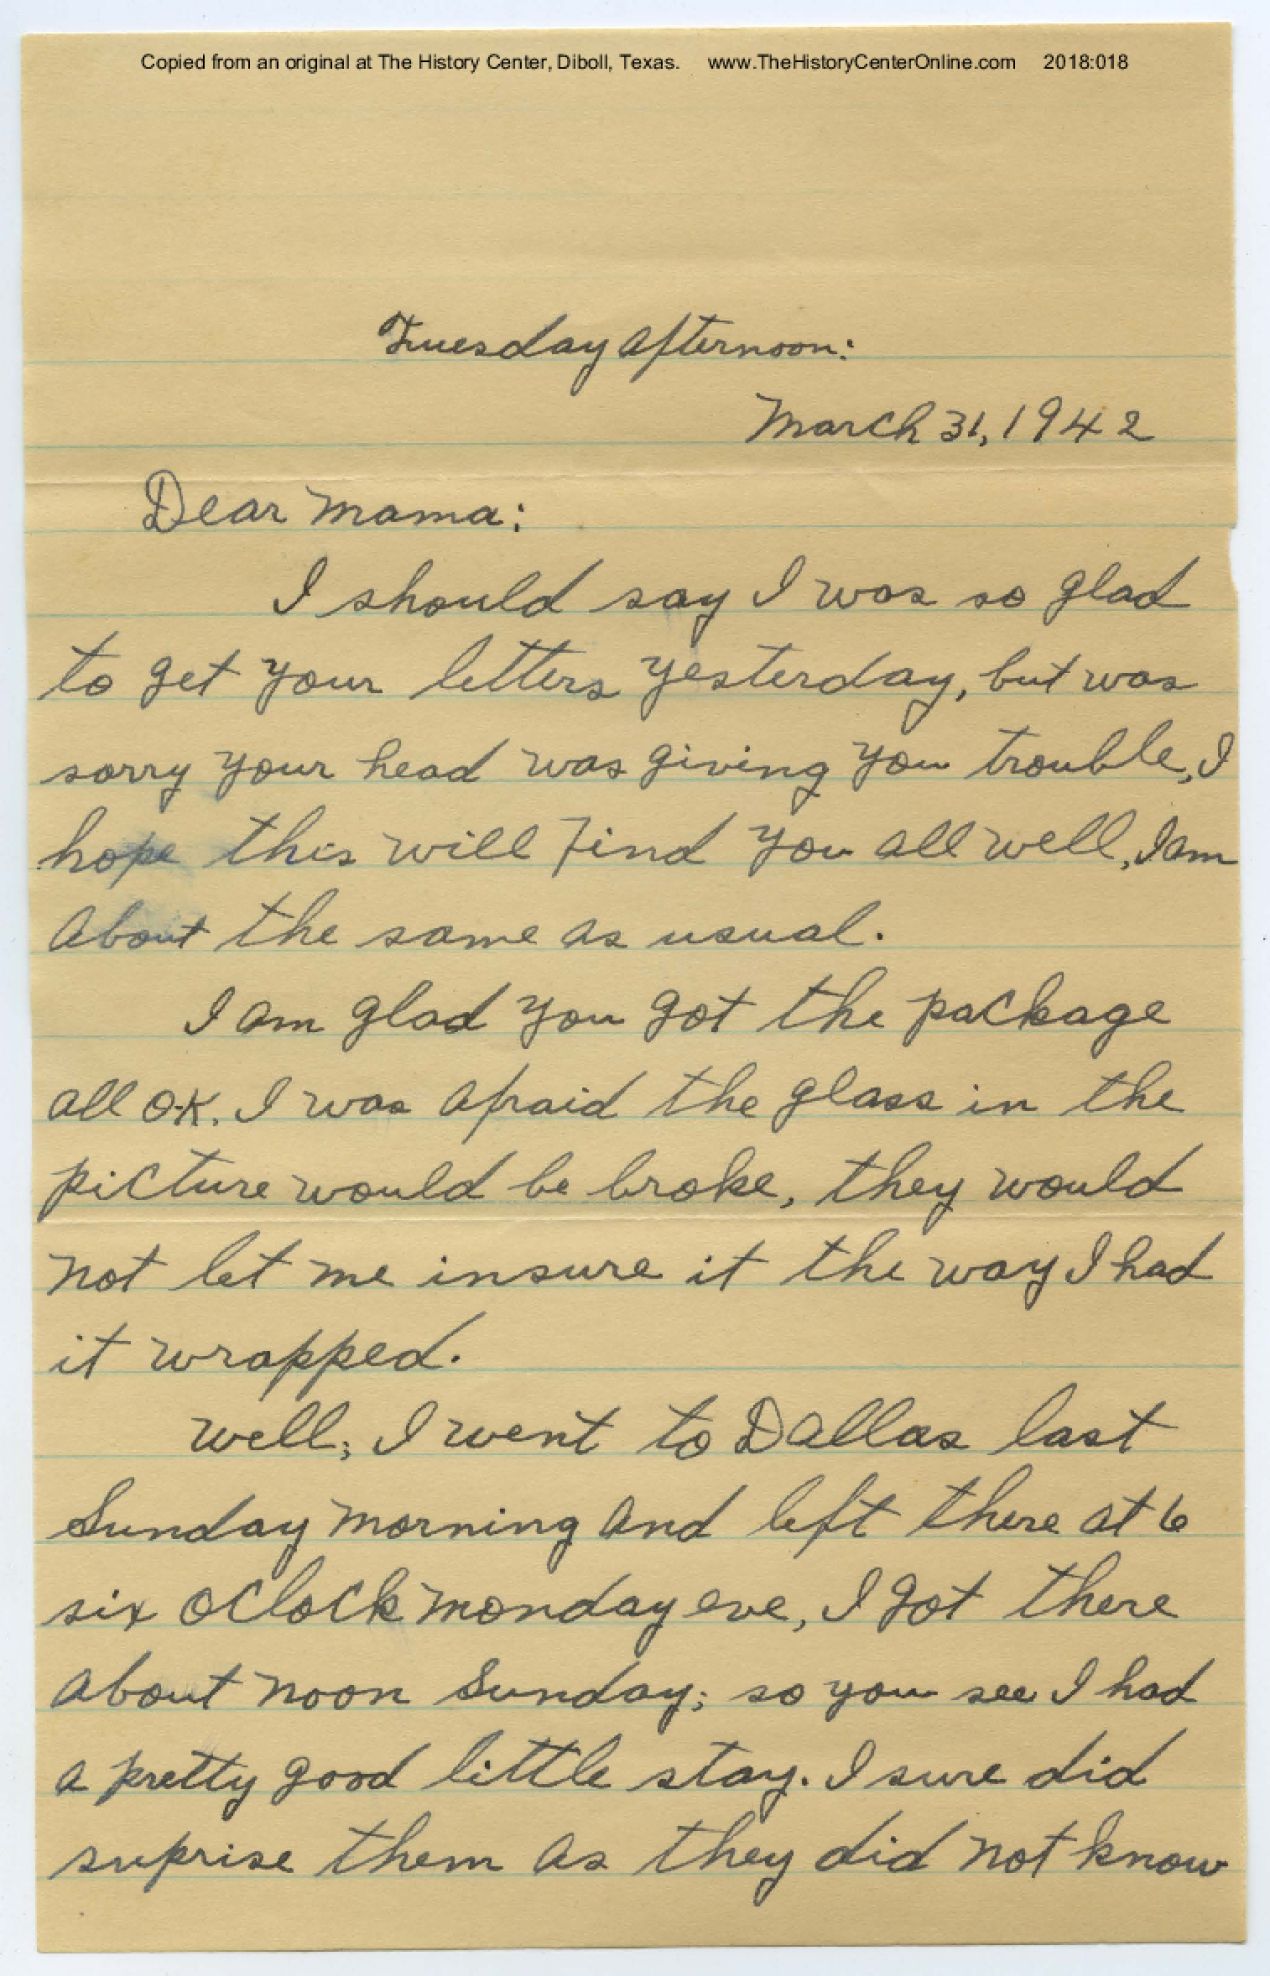 Copied from an original at The History Center, Diboll, Texas. www.TheHistoryCenterOnline.com 2018:018
Tuesday afternoon:
March 31, 1942
Dear Mama:
I should say I was so glad
to get your letters yesterday, but was
sorry your head was giving you trouble, I
hope this will find you all well, I am
about the same as usual.
I am glad you got the package
all O.K. I was afraid the glass in the
picture would be broke, they would
not let me insure it the way I had
it wrapped.
Well, I went to Dallas last
Sunday morning and left there at 6
six oclock monday eve, I got there
about noon Sunday; so you see I had
a pretty good little stay. I sure did
suprise them as they did not know